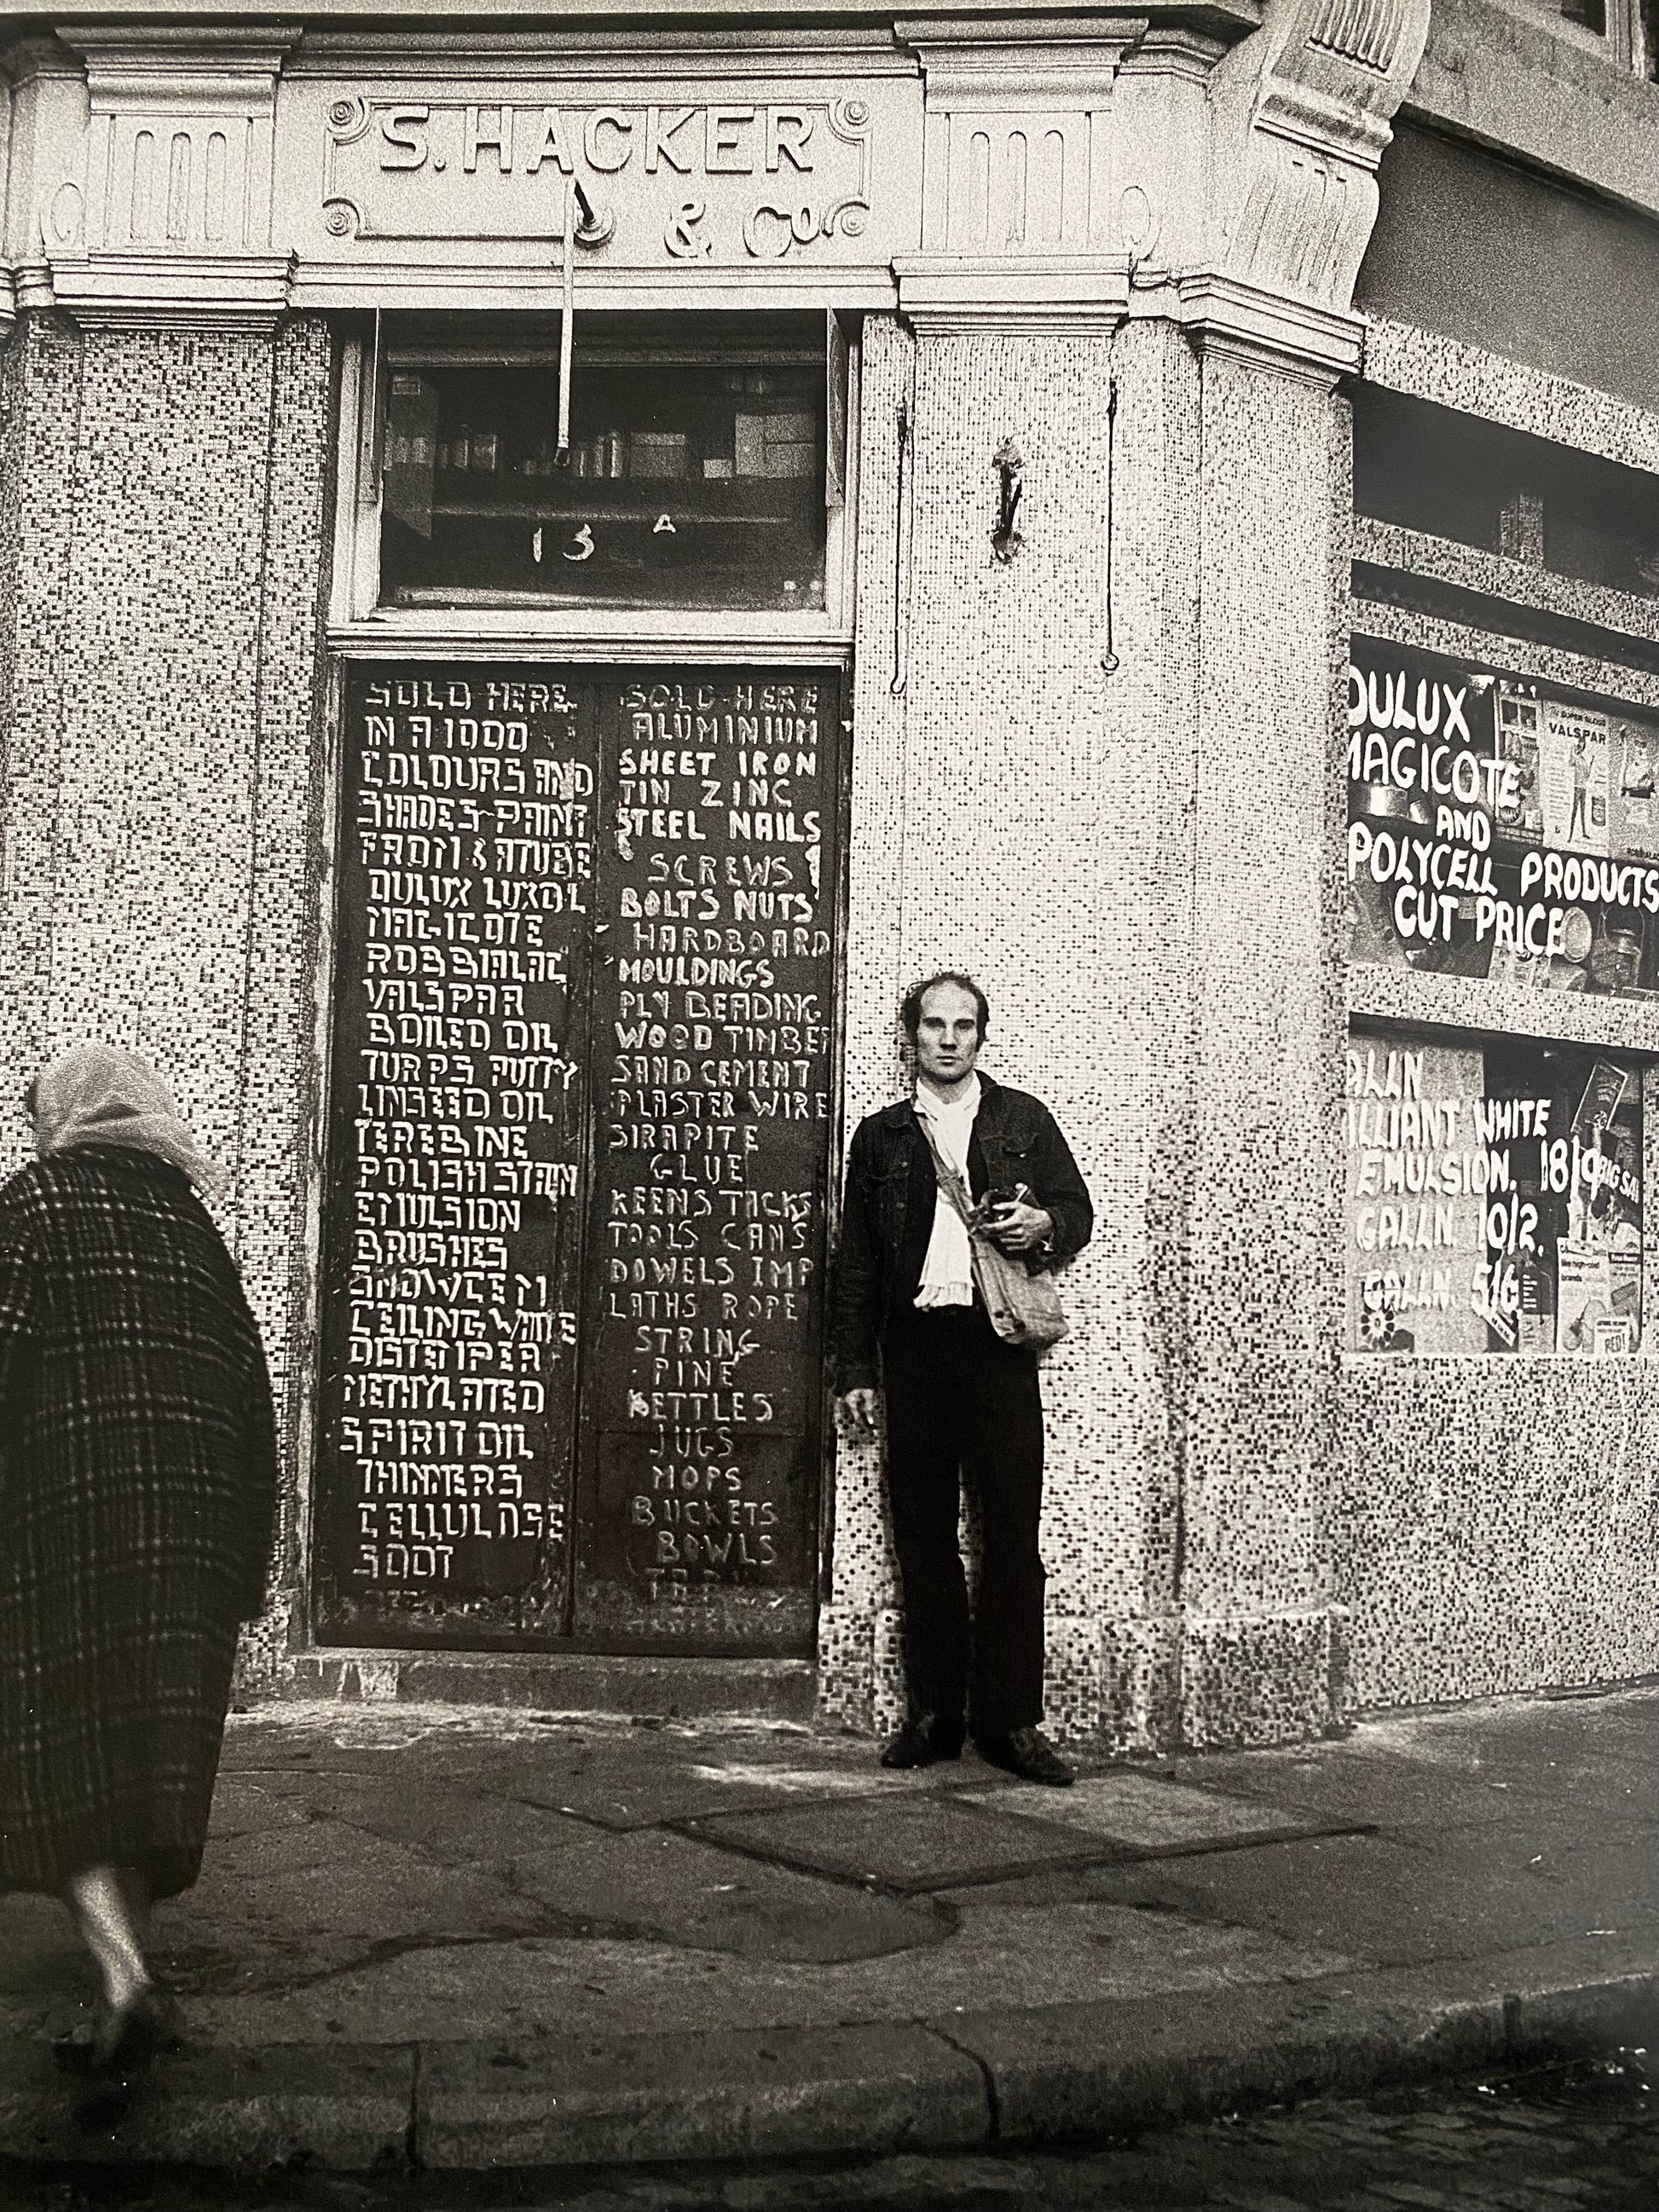 S. HACKER
& Co.
13 A
SOLD HERE
IN A 1000
COLOURS AND
SHADES-PAINT
FROM & A TUBE
DULUX LUXOL
MAGICOTE
ROBBIALAC
VALSPAR
BOILED OIL
TURPS PUTTY
LINSEED OIL
TEREBINE
POLISH STAIN
EMULSION
BRUSHES
SNOWCEM
CEILING WHITE
DISTEMPER
METHYLATED
SPIRIT OIL
THINNERS
CELLULOSE
SOOT
SOLD HERE
ALUMINIUM
SHEET IRON
TIN ZINC
STEEL NAILS
SCREWS
BOLTS NUTS
HARDBOARD
MOULDINGS
PLY BEADING
WOOD TIMBER
SAND CEMENT
PLASTER WIRE
SIRAPITE
GLUE
KEENS TACKS
TOOLS CANS
DOWELS IMP
LATHS ROPE
STRING
PINE
KETTLES
JUGS
MOPS
BUCKETS
BOWLS
DULUX
MAGICOTE
AND
POLYCELL PRODUCTS
CUT PRICE
VALSPAR
ALLN
ILLIANT WHITE
EMULSION. 18/9
GALLN. 10/2.
GALLN. 5/6
BIG SA
RED!